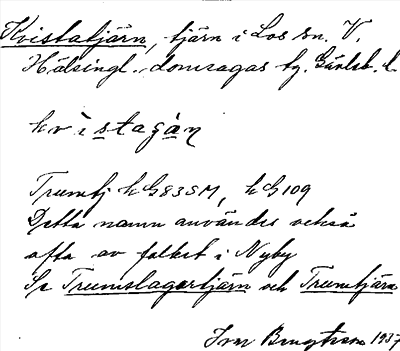 Kvistatjärn, tjärn i Los sn. V.
Hälsingl. domsagas tg. Gävleb. l.
kvistagàn
Trumtj kG83SM, kG109
Detta namn användes också
ofta av folket i Nyby
Se Trumslagartjärn och Trumtjärn
Bengtsson 1937